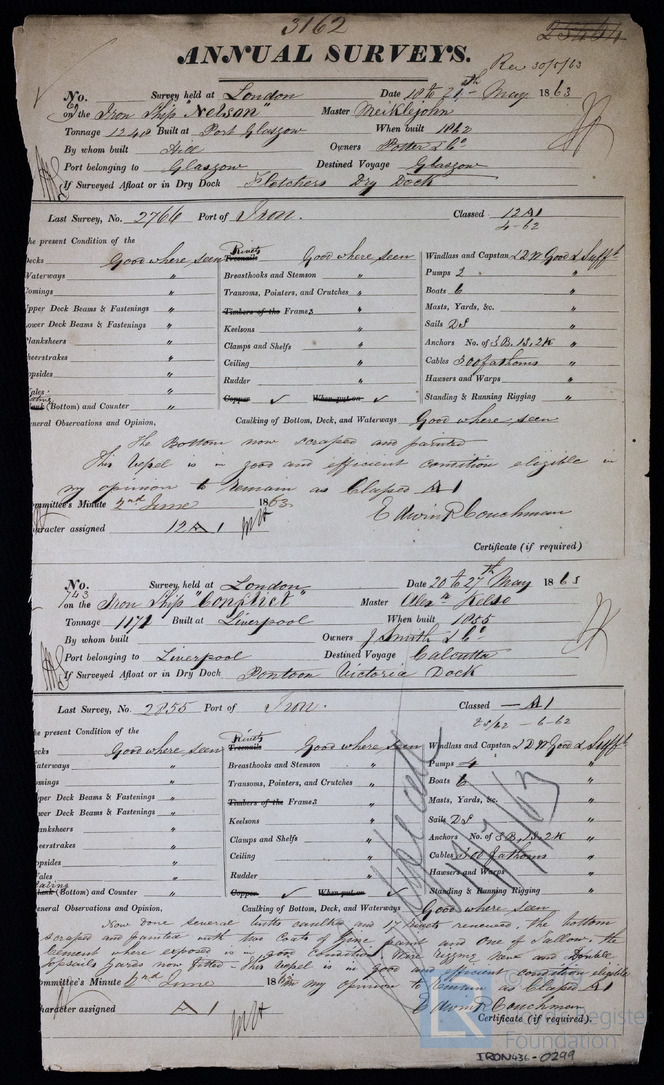 3162
ANNUAL SURVEYS.
Rec 30/5/63
No. Survey held at London Date 18 to 21st May 1863
on the Iron Ship "Nelson" Master Meiklejohn
Tonnage 1248 Built at Port Glasgow When built 1862
By whom built Hill Owners Potter & Co
Port belonging to Glasgow Destined Voyage Glasgow
If Surveyed Afloat or in Dry Dock Fletchers Dry Dock
Last Survey, No. 2766 Port of Iron. Classed 12A1
4-62
he present Condition of the
Decks Good where seen Rivets Treenails Good where seen Windlass and Capstan 1 2 W Good & Sufft
Waterways " Breasthooks and Stemson " Pumps 2 "
Comings " Transoms, Pointers, and Crutches " Boats 6 "
Upper Deck Beams & Fastenings " Timbers of the Frames " Masts, Yards, &c. "
Lower Deck Beams & Fastenings " Keelsons " Sails "
Planksheers " Clamps and Shelfs " Anchors No. of 3B, 1S, 2K "
heerstrakes " Ceiling " Cables 300 fathoms "
opsides " Rudder " Hawsers and Warps "
ales " Copper ✓ When put on ✓ Standing & Running Rigging "
(Bottom) and Counter " Caulking of Bottom, Deck, and Waterways Good where seen
eneral Observations and Opinion,
The Bottom now scraped and painted
This Vessel is in good and efficient condition eligible in
my opinion to remain as Classed A1
ommittee's Minute 2nd June 1863. Edwin R Couchman
haracter assigned 12 A 1
Certificate (if required)
No. 743 Survey, held at London Date 20 to 27th May 1863
on the Iron Ship "Conflict" Master Alexr Kelso
Tonnage 1172 Built at Liverpool When built 1855
By whom built Owners J Smith & Co
Port belonging to Liverpool Destined Voyage Calcutta
If Surveyed Afloat or in Dry Dock Pontoon Victoria Dock
Last Survey, No. 2855 Port of Iron. Classed — A1
6-62
he present Condition of the
ecks Good where seen Rivets Treenails Good where seen Windlass and Capstan 1 2 W Good & Sufft
aterways " Breasthooks and Stemson " Pumps 4 "
omings " Transoms, Pointers, and Crutches " Boats 6 "
pper Deck Beams & Fastenings " Timbers of the Frames " Masts, Yards, &c. "
ower Deck Beams & Fastenings " Keelsons " Sails "
anksheers " Clamps and Shelfs " Anchors No. of 3B, 1S, 2K "
eerstrakes " Ceiling " Cables 300 fathoms "
opsides " Rudder " Hawsers and Warps "
ales " Copper ✓ When put on ✓ Standing & Running Rigging "
Plating (Bottom) and Counter " Caulking of Bottom, Deck, and Waterways Good where seen
eneral Observations and Opinion,
Now done several butts caulked and 17 Rivets renewed, the bottom
scraped and painted with two Coats of Zinc paint and One of Tallow, the
Cement where exposed is in good condition, Wire rigging new and Double
topsails Yards now fitted — This Vessel is in good and efficient condition eligible
in my opinion to remain as Classed A1
ommittee's Minute 2nd June 186 Edwin R Couchman
haracter assigned A 1
Certificate (if required).
Lloyd's Register
Foundation
IRON436-0299